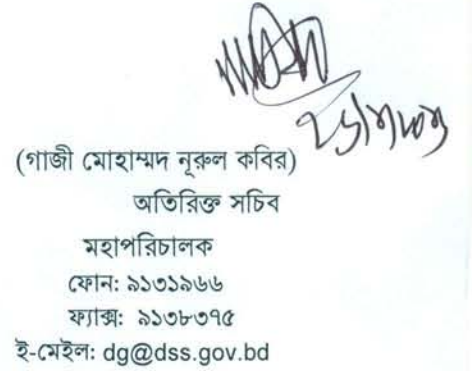 (গাজী মোহাম্মদ নূরুল কবির)
অতিরিক্ত সচিব
মহাপরিচালক
ফোন: ৯১৩১৯৬৬
ফ্যাক্স: ৯১৩৮৩৭৫
ই-মেইল: dg@dss.gov.bd